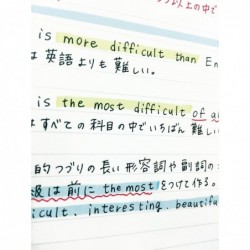 以上の中で
is more difficult than En
は英語よりも難しい。
is the most difficult of a
はすべての科目の中でいちばん難しい
的つづりの長い形容詞や副詞の
級は前に the most をつけて作る。
icult, interesting, beautiful